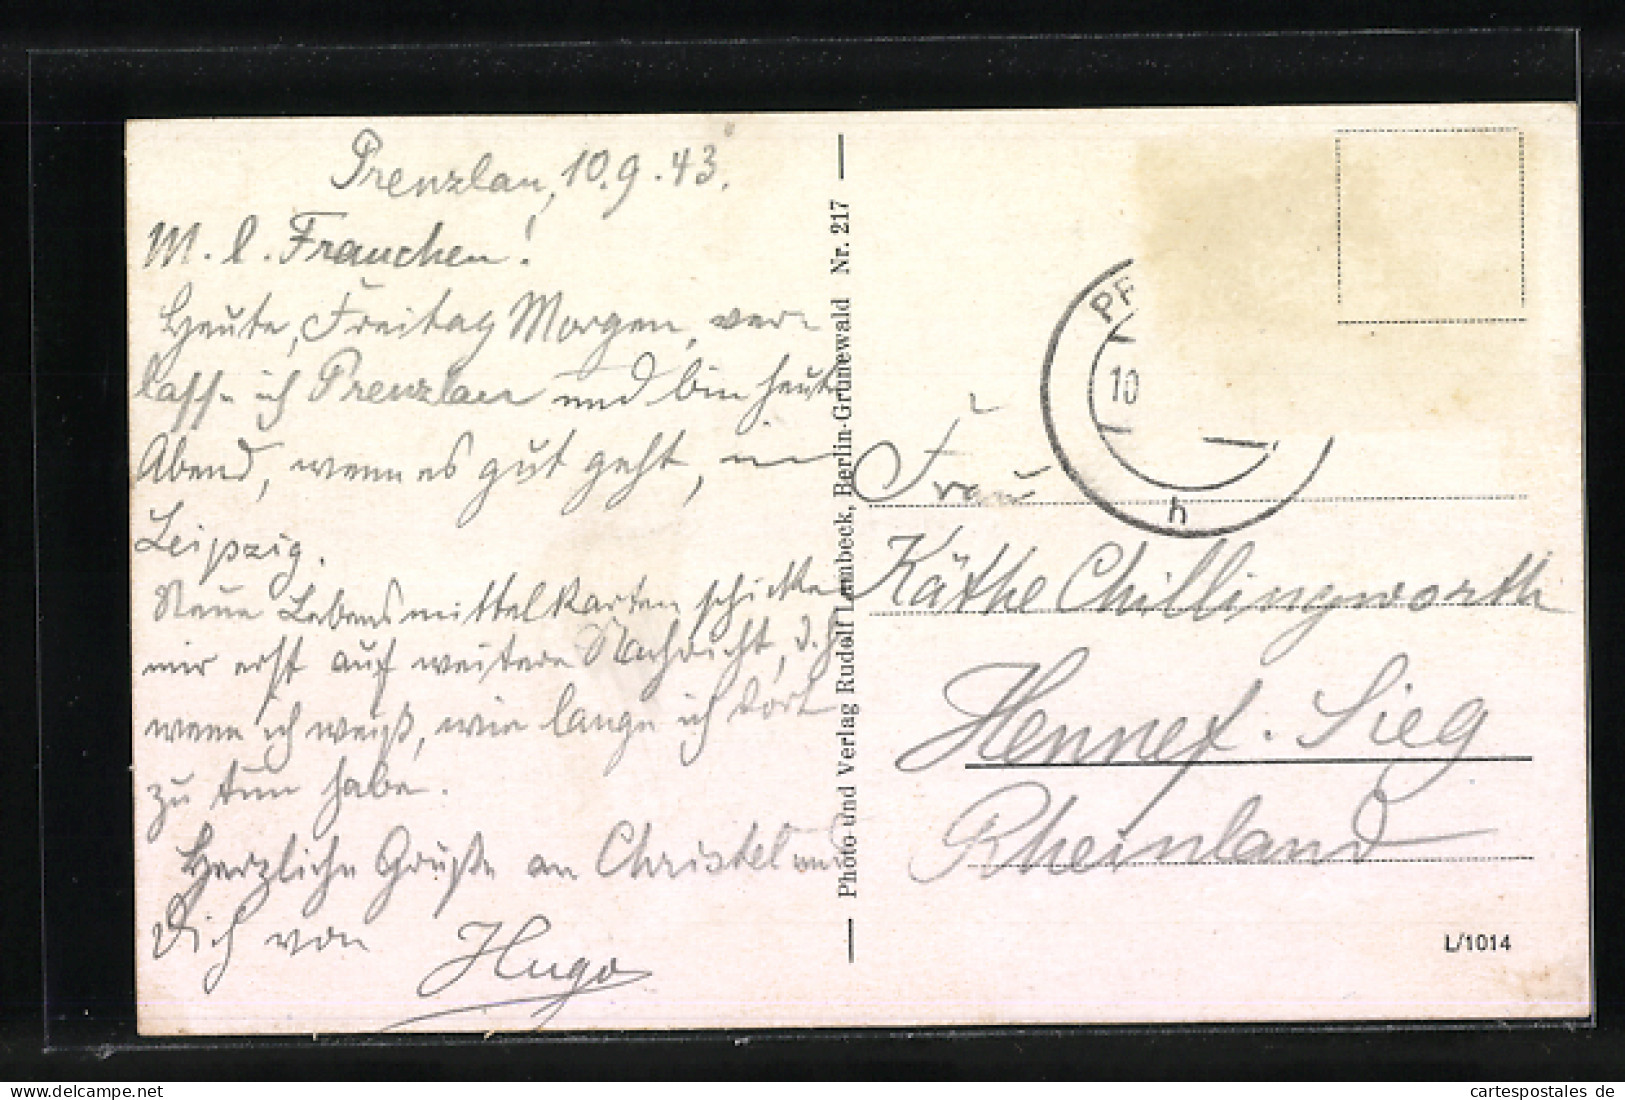 Prenzlau, 10.9.43.
M. l. Frauchen!
Heute, Freitag Morgen, ver-
lasse ich Prenzlau und bin heute
Abend, wenn es gut geht, in
Leipzig.
Neue Lebensmittelkarten schicke
mir erst auf weitere Nachricht, d.h.
wenn ich weiß, wie lange ich dort
zu tun habe.
Herzliche Grüße an Christel und
Dich von
Hugo
Photo und Verlag Rudolf Lambeck, Berlin-Grunewald Nr. 217
10
h
Frau
Käthe Chillingworth
Hennef. Sieg
Rheinland
L/1014
delcampe.net
cartespostales de